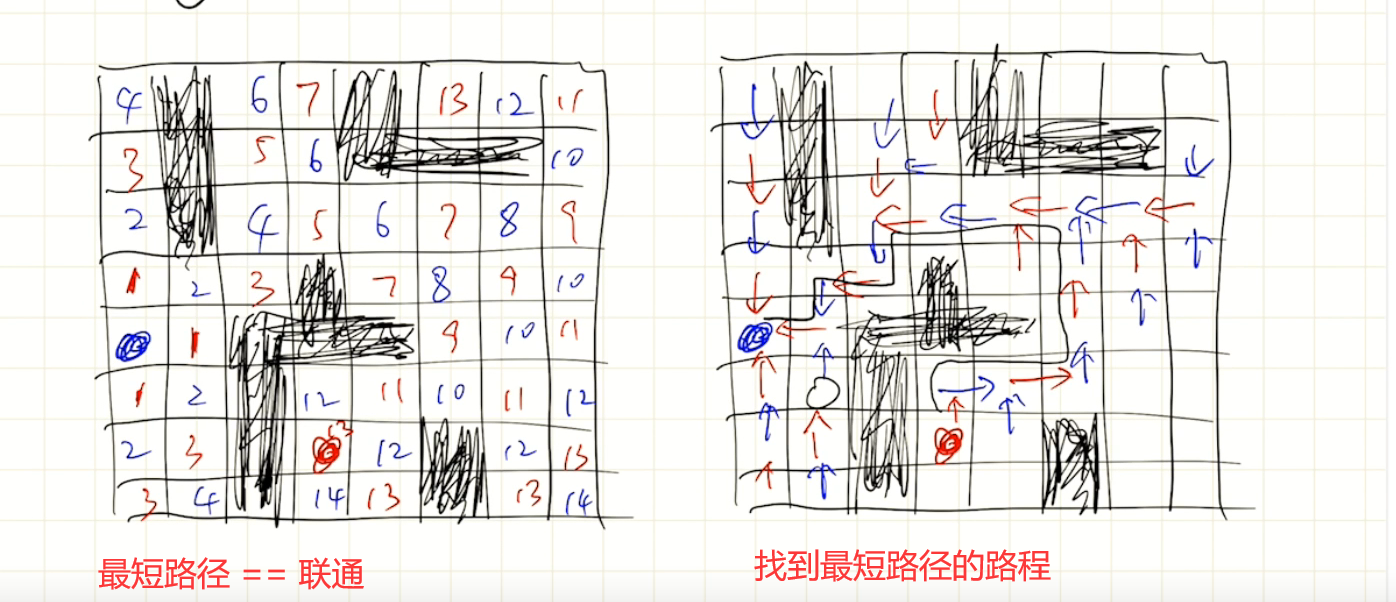 4 6 7 13 12 11
3 5 6 10
2 4 5 6 7 8 9
1 2 3 7 8 9 10
1 9 10 11
1 2 12 11 10 11 12
2 3 13 12 12 13
3 4 14 13 13 14
最短路径 == 联通
找到最短路径的路程